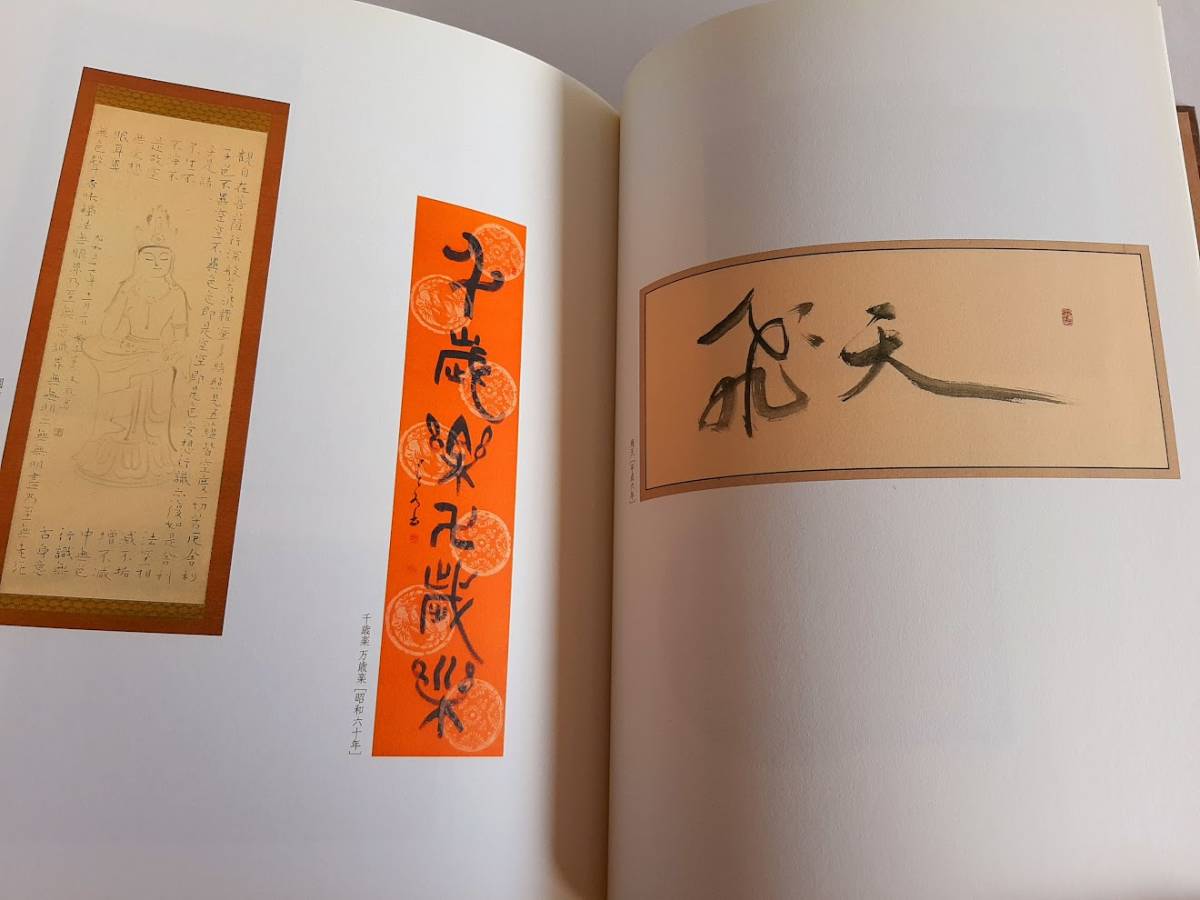 飛天
飛天［平成六年］
千歳樂卍歳樂
千歳楽 万歳楽［昭和六十年］
観自在菩薩行深般若波羅蜜多時照見五蘊皆空度一切苦厄舎利
子色不異空空不異色色即是空空即是色受想行識亦復如是舎利
子是諸法空相
不生不滅不垢
不浄不増不減
是故空中無色
無受想行識無
眼耳鼻舌身意
無色聲香味觸法無眼界乃至無意識界無無明亦無無明盡乃至無老死